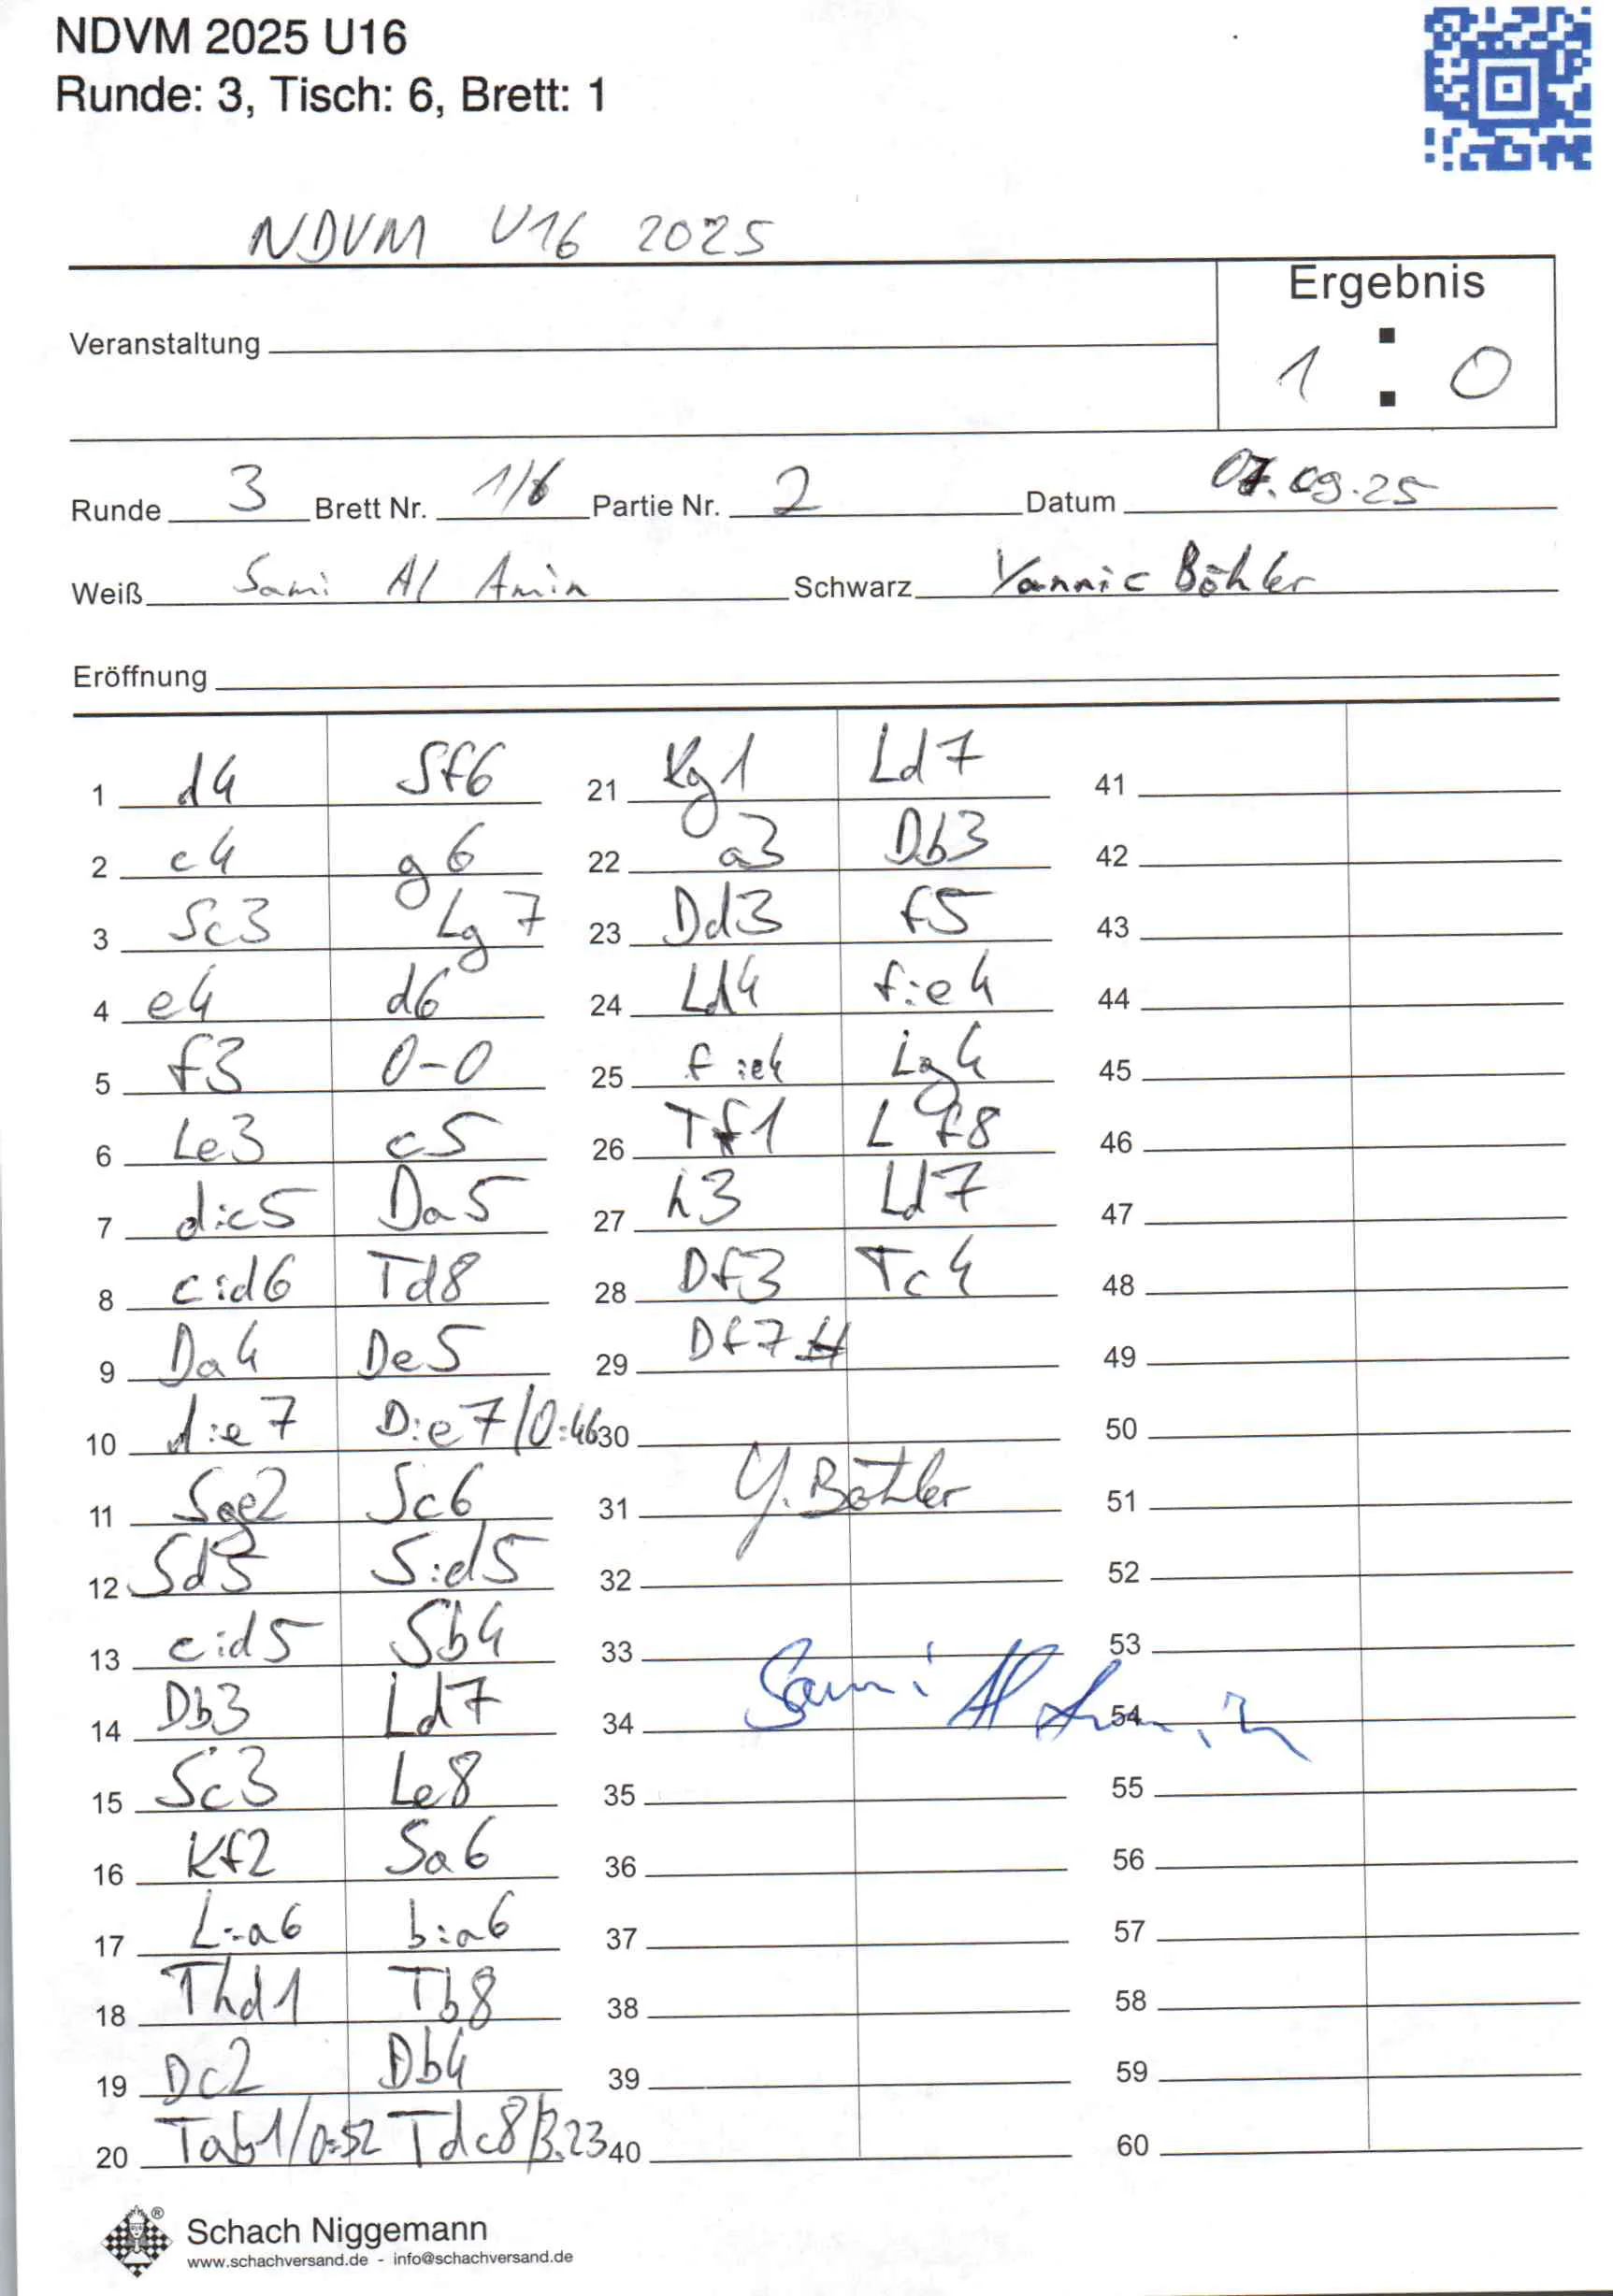 NDVM 2025 U16
Runde: 3, Tisch: 6, Brett: 1
NDVM U16 2025
Ergebnis
Veranstaltung
1 : 0
Runde 3 Brett Nr. 1/6 Partie Nr. 2 Datum 07.09.25
Weiß Sami Al Amin Schwarz Yannic Böhler
Eröffnung
1 d4 Sf6
2 c4 g6
3 Sc3 Lg7
4 e4 d6
5 f3 0-0
6 Le3 c5
7 d:c5 Da5
8 c:d6 Td8
9 Da4 De5
10 d:e7 D:e7/0:46
11 Sge2 Sc6
12 Sd5 S:d5
13 c:d5 Sb4
14 Db3 Ld7
15 Sc3 Le8
16 Kf2 Sa6
17 L:a6 b:a6
18 Thd1 Tb8
19 Dc2 Db4
20 Tab1/0:52 Tdc8/3.23
21 Kg1 Ld7
22 a3 Db3
23 Dd3 f5
24 Ld4 f:e4
25 f:e4 Lg4
26 Tf1 Lf8
27 h3 Ld7
28 Df3 Tc4
29 Df7#
30
31 Y. Böhler
32
33
34 Sami Al Amin
35
36
37
38
39
40
41
42
43
44
45
46
47
48
49
50
51
52
53
54
55
56
57
58
59
60
Schach Niggemann
www.schachversand.de - info@schachversand.de